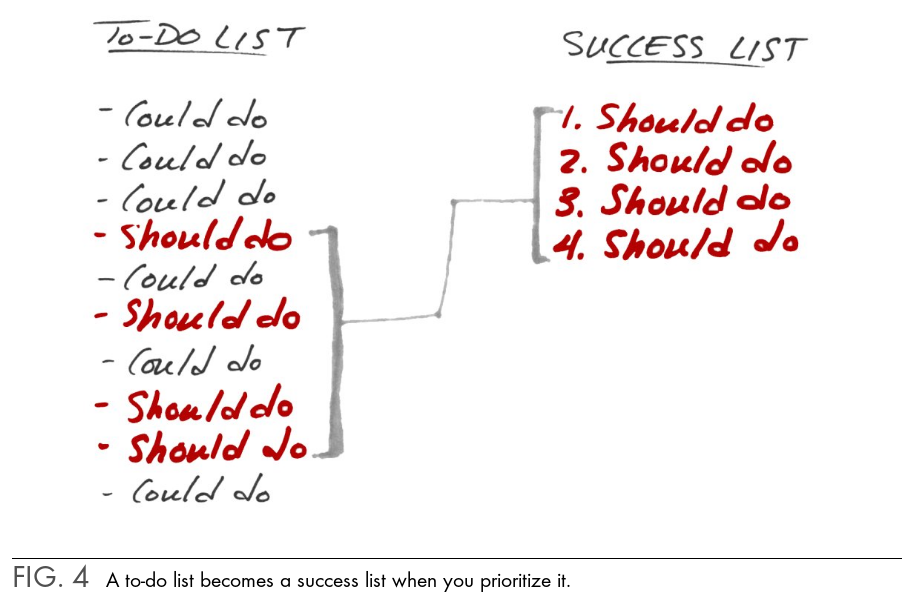 TO-DO LIST
- Could do
- Could do
- Could do
- Should do
- Could do
- Should do
- Could do
- Should do
- Should do
- Could do
SUCCESS LIST
1. Should do
2. Should do
3. Should do
4. Should do
FIG. 4 A to-do list becomes a success list when you prioritize it.